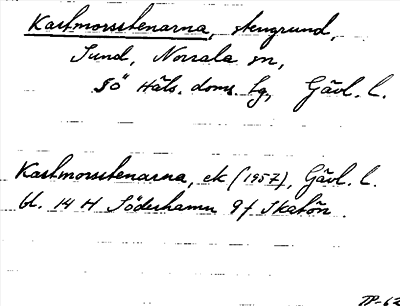 Kastmorsstenarna, stengrund,
Sund, Norrala sn,
SÖ Häls. doms. hg, Gävl. l.
Kastmorsstenarna, ek (1957), Gävl. l.
bl. 14 H Söderhamn 9f Skatön.
TP-62